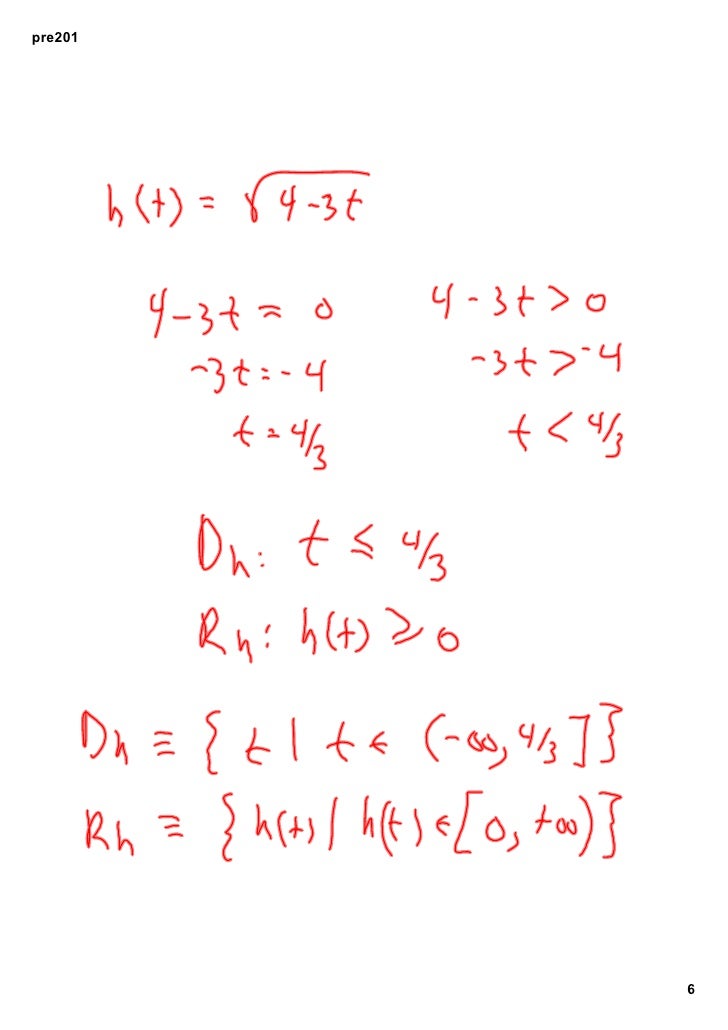 pre201
h(t) = √4-3t
4-3t = 0
4-3t>0
-3t=-4
-3t>-4
t=4/3
t<4/3
Dh: t≤4/3
Rh: h(t)≥0
Dh≡{t|t∈(-∞,4/3]}
Rh≡{h(t)|h(t)∈[0,+∞)}
6